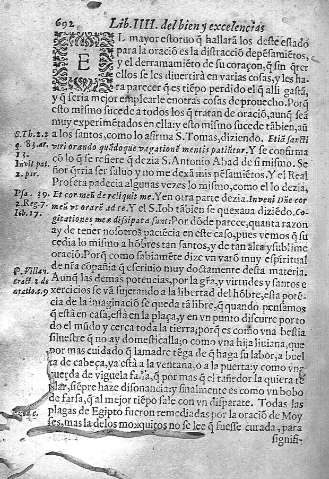 692 Lib. IIII. del bien y excelencias
EL mayor estoruo q̃ hallarã los deste estado
para la oraciõ es la distracciõ de pẽsamiẽtos,
y el derramamiẽto de su coraçon, q̃ sin q̃rer
ellos se les diuertirá en varias cosas, y les ha-
ra parecer q̃ es tiẽpo perdido el q̃ alli gastã,
y q̃ seria mejor emplearle en otras cosas de prouecho. Porq̃
esto mismo sucede a todos los q̃ tratan de oraciõ, aunq̃ seã
muy experimẽtados en ella y esto mismo sucede tãbien, aũ
a los santos, como lo afirma S. Tomas, diziendo. Etiã sancti
viri orando quãdoque vagationẽ mentis patiũtur. Y se confirma
cõ lo q̃ se refiere q̃ dezia S. Antonio Abad de si mismo. Se
ñor q̃rria ser saluo y no me dexã mis pẽsamiẽtos. Y el Real
Profeta padecia algunas vezes lo mismo, como el lo dezia,
Et cor meũ dereliquit me. Y en otra parte dezia. Inveni Dñe cor
meũ vt orarẽ ad te. Y el S. Iob tãbiẽ se quexaua diziẽdo. Co-
gitationes meæ disipatæ sunt. Por dõde parece, quanta razon
ay de tener nosotros paciẽcia en este caso, pues vemos q̃ su
cedia lo mismo a hõbres tan santos, y de tan alta y sublime
oraciõ. Porq̃ como sabiamẽte dize vn varõ muy espiritual
de nr̃a cõpañia q̃ escriuio muy doctamente desta materia.
Aunq̃ las demas potencias, por la gr̃a, y virtudes y santos e-
xercicios se và sugetando a la libertad del hõbre, esta potẽ-
cia de la imaginaciõ se queda tã libre, q̃ quando pensamos
q̃ està en casa, està en la plaça, y en vn punto discurre por to
do el mũdo y cerca toda la tierra, porq̃ es como vna bestia
siluestre q̃ no ay domesticalla, o como vna hija liuiana, que
por mas cuidado q̃ la madre tẽga de q̃ haga su labor, a buel
ta de cabeça, ya està a la ventana, o a la puerta: y como vna
cuerda de viguela falsa, q̃ por mas q̃ el tañedor la quiera tẽ
plar, siẽpre haze disonancia: y finalmente es como vn bobo
de farsa, q̃ al mejor tiẽpo sale con vn disparate. Todas las
plagas de Egipto fueron remediadas por la oraciõ de Moy
ses, mas la delos mosquitos no se lee q̃ fuesse curada, para
signifi-
S. Th. 2. 2
q. 83. ar.
13.
2. par.
Psa. 39.
2. Reg. 7.
Iob. 17.